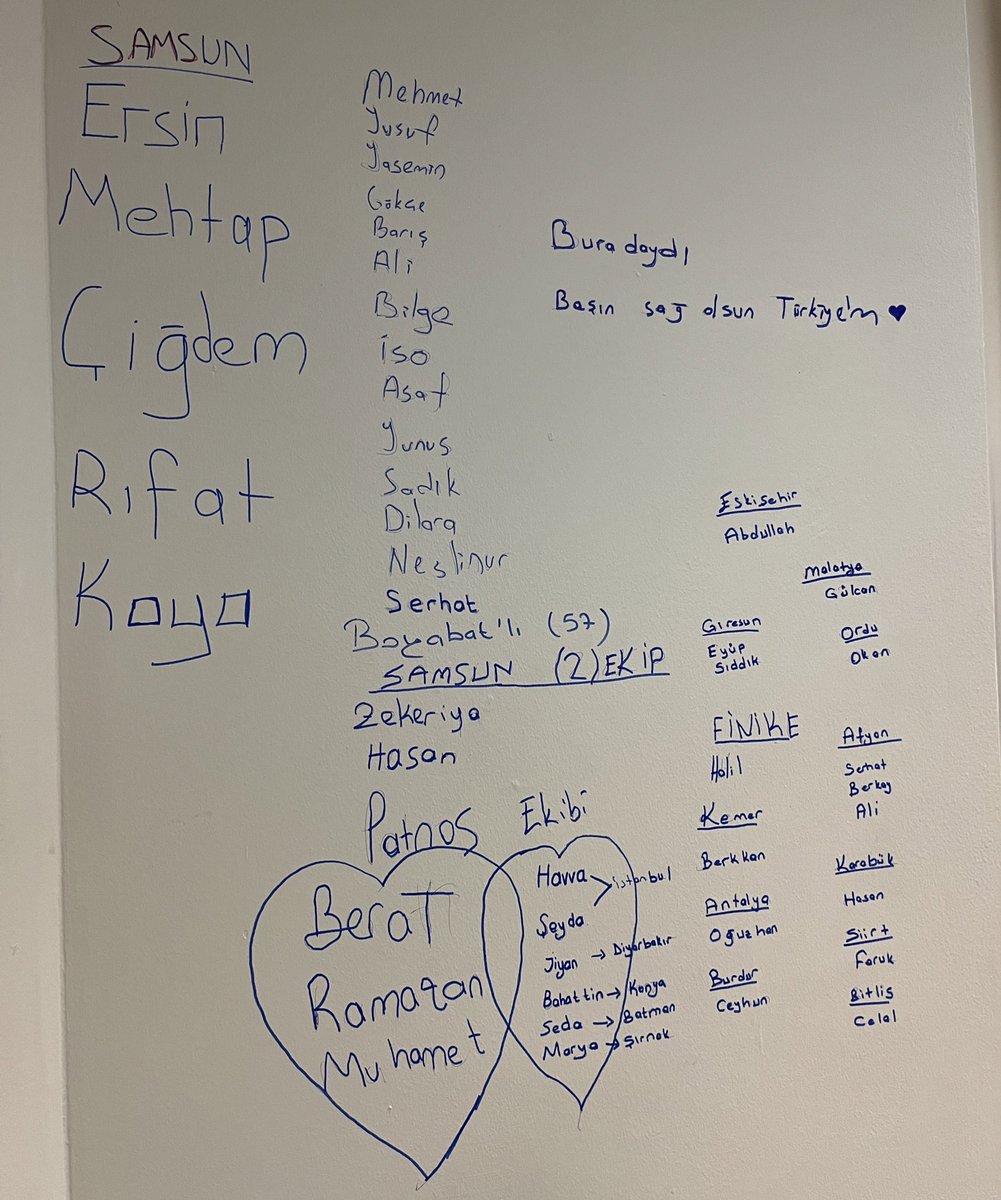 SAMSUN
Ersin
Mehtap
Çiğdem
Rıfat
Kaya
Mehmet
Yusuf
Yasemin
Gökçe
Barış
Ali
Bilge
iso
Asaf
Yunus
Sadık
Dilara
Neslinur
Serhat
Boyabat'lı (57)
SAMSUN (2) EKİP
Zekeriya
Hasan
Buradaydı
Başın sağ olsun Türkiye'm ♥
Patnos Ekibi
Berat
Ramazan
Muhamet
Havva
Şeyda
istanbul
Jiyan → Diyarbakır
Bahattin → Konya
Seda → Batman
Marya → Şırnak
Eskişehir
Abdullah
Malatya
Gülcan
Giresun
Eyüp
Sıddık
Ordu
Okan
FİNİKE
Halil
Afyon
Serhat
Berkay
Ali
Kemer
Berkkan
Karabük
Hasan
Antalya
Oğuzhan
Siirt
Faruk
Burdur
Ceyhun
Bitlis
Celal